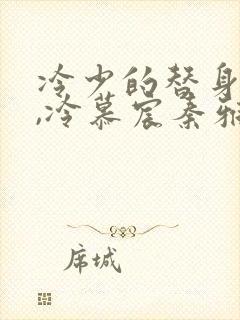 冷少的替身
,冷慕宸秦雅
席城